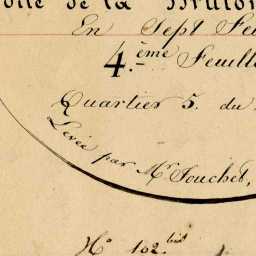 de la
En Sept Feu
4.ème Feuille
Quartier 5. du
Levée par Mr. Fouchet,
No 102.bis